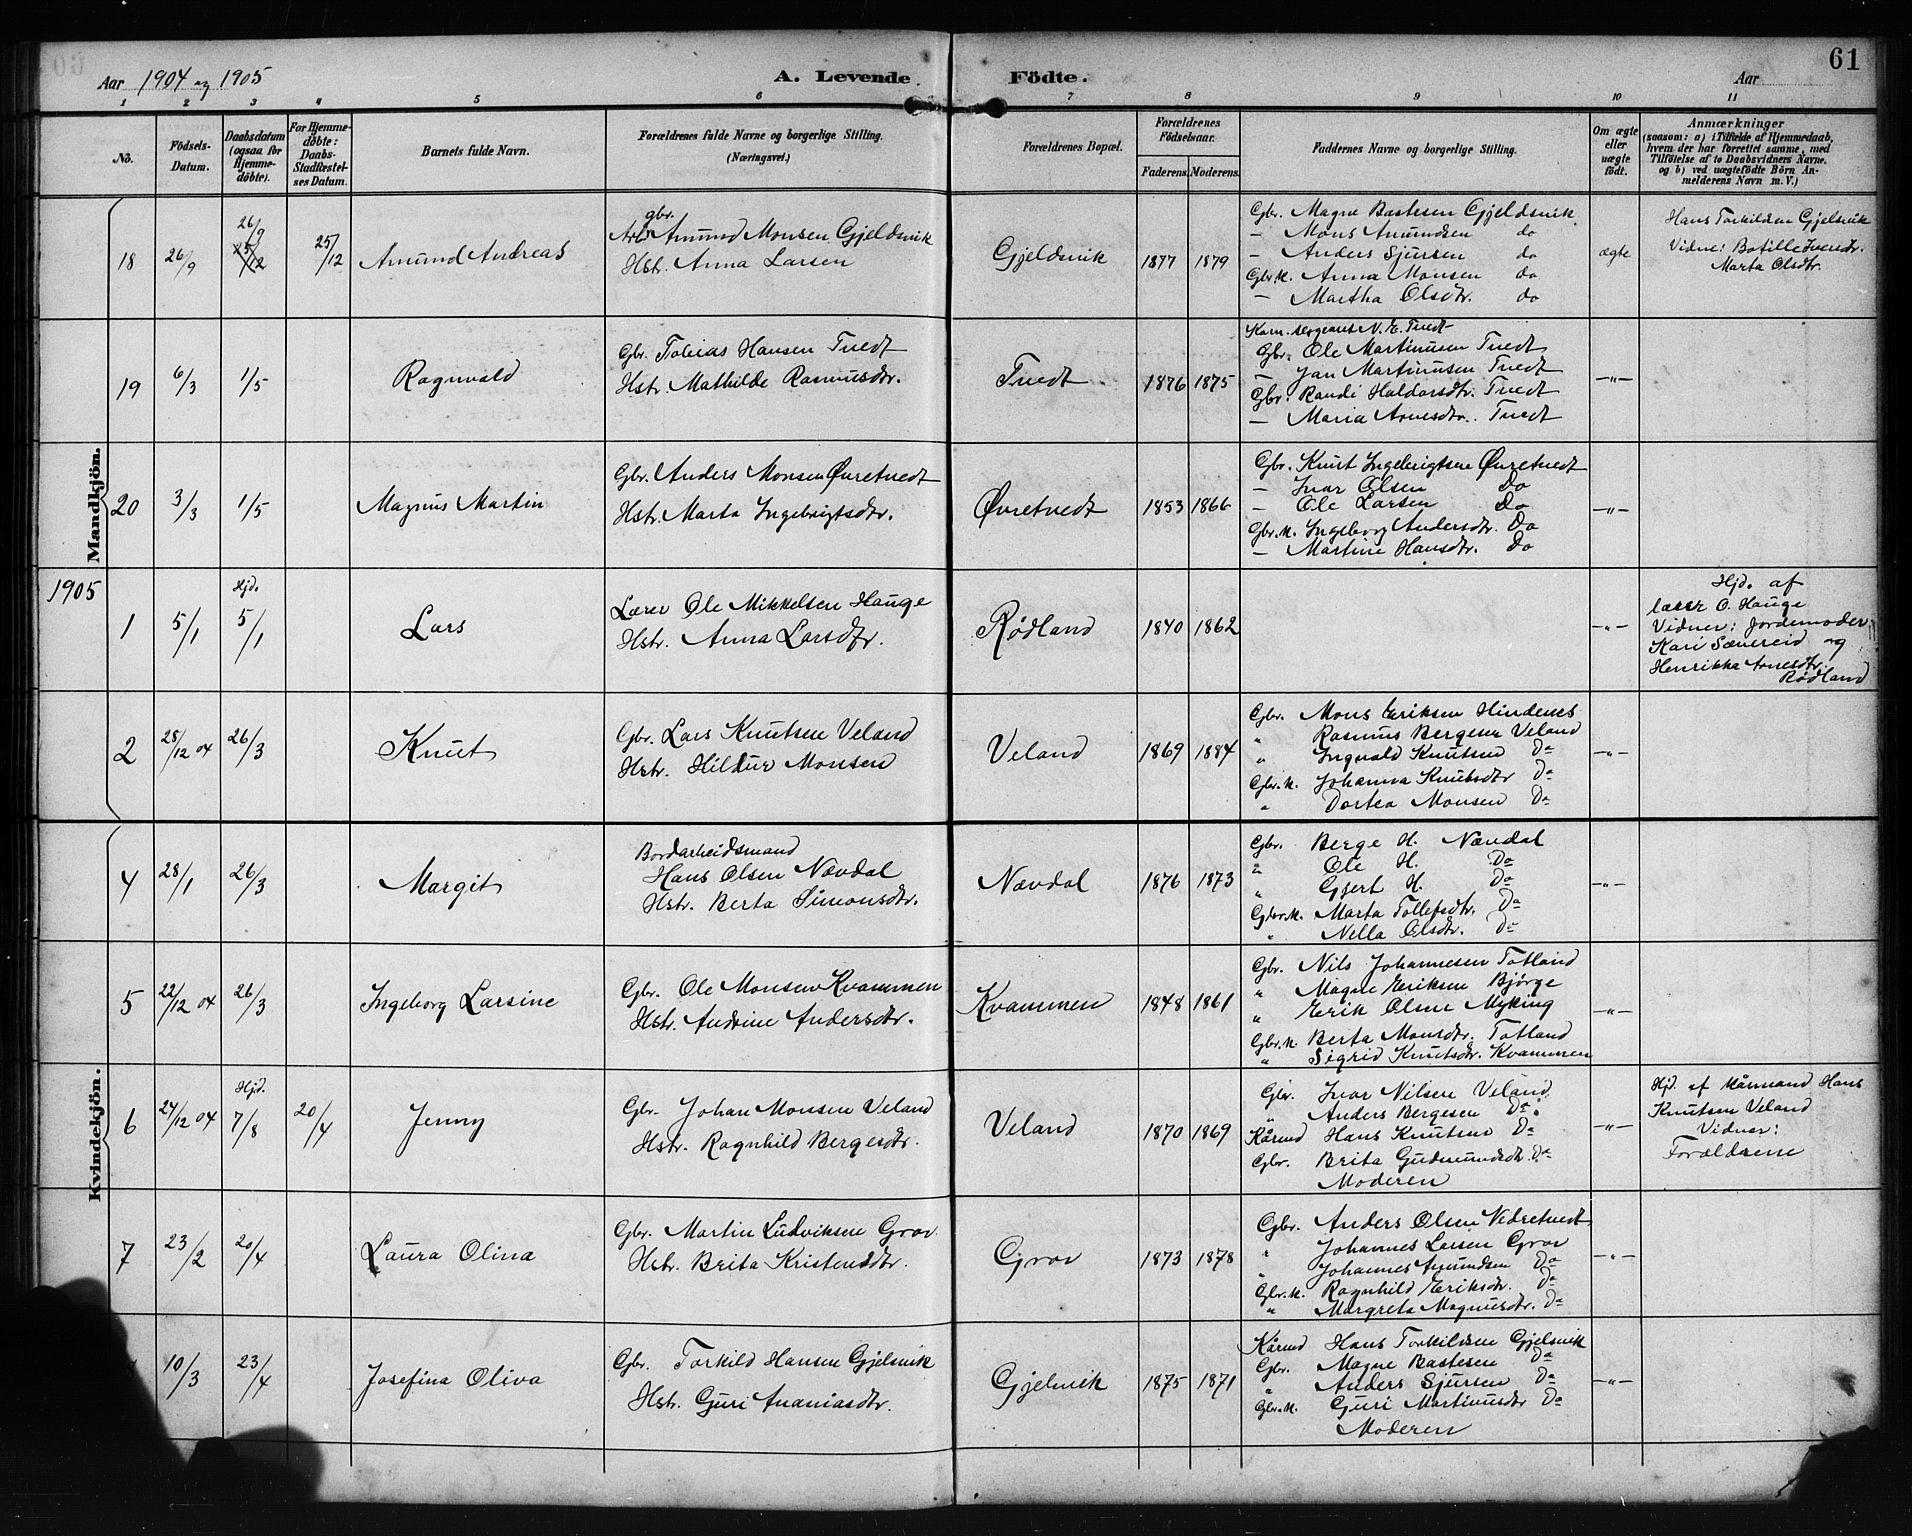 61
Aar 1904 og 1905 A. Levende Födte. Aar
1 2 3 4 5 6 7 8 9 10 11
No. Födsels-Datum. Daabsdatum (ogsaa for Hjemme-döbte). For Hjemme-döbte: Daabs-Stadfæstelses Datum. Barnets fulde Navn. Forældrenes fulde Navne og borgerlige Stilling. (Næringsvei.) Forældrenes Bopæl. Forældrenes Födselsaar. Faderens. Moderens. Faddernes Navne og borgerlige Stilling. Om ægte eller uægte födt. Anmærkninger (saasom: a) i Tilfælde af Hjemmedaab, hvem der har forrettet samme, med Tilföielse af to Daabsvidners Navne. og b) ved uægtefödte Börn Anmelderens Navn m. V.)
Mandkjön.
18 26/9 26/9 25/12 25/12 Amund Andreas
gbr.
Amund Monsen Gjeldsvik
Hst. Anna Larsen
Gjeldsvik 1877 1879
Gbr. Magne Bastesen Gjeldsvik
— Mons Amundsen do
— Anders Sjursen do
Gbr.k. Anna Monsen do
— Martha Olsdtr. do
ægte
Hans Torkildsen Gjelsvik
Vidne: Botille Iversdtr.
Marta Olsdtr.
19 6/3 1/5 Ragnvald
Gbr. Tobias Hansen Tvedt
Hstr. Mathilde Rasmusdtr.
Tvedt 1876 1875
Korn. sergeant N. E. Tvedt
Gbr. Ole Martinusen Tvedt
— Jan Martinusen Tvedt
Gbr. Randi Haldorsdtr. Tvedt
— Maria Arnesdtr. Tvedt
—"—
20 3/3 1/5 Magnus Martin
Gbr. Anders Monsen Øvretvedt
Hstr. Marta Ingebrigtsdtr.
Øvretvedt 1853 1866
Gbr. Knut Ingebrigtsen Øvretvedt
— Ivar Olsen Do
— Ole Larsen Do
Gbr.k. Ingeborg Andersdtr. Do
— Martine Hansdtr. Do
—"—
1905
1 5/1 Hjd. 5/1 Lars
Lærer Ole Mikkelsen Hauge
Hstr. Anna Larsdtr.
Rødland 1840 1862
—"—
Hjd. af
lærer O. Hauge
Vidner: Jordemoder
Kari Sævereid og
Henrikka Arnesdtr.
Rødland
2 28/12 04 26/3 Knut
Gbr. Lars Knutsen Veland
Hstr. Hildur Monsen
Veland 1869 1884
Gbr. Mons Eriksen Hindenes
" Rasmus Bergesen Veland
" Ingvald Knutsen Do
Gbr.k. Johanna Knutsdtr Do
" Dortea Monsen Do
—"—
Kvindekjön.
4 28/1 26/3 Margit
Bordarbeidsmand
Hans Olsen Nævdal
Hstr. Berta Simonsdtr.
Nævdal 1876 1873
Gbr. Berge H. Nævdal
" Ole H. Do
" Gjert H. Do
Gbr.k. Marta Tollefsdtr. Do
" Nella Olsdtr. Do
—"—
5 22/12 04 26/3 Ingeborg Larsine
Gbr. Ole Monsen Kvammen
Hstr. Andrine Andersdtr.
Kvammen 1848 1861
Gbr. Nils Johannesen Totland
" Magne Eriksen Bjørge
" Erik Olsen Myking
Gbr.k. Berta Monsdtr. Totland
" Sigrid Knutsdtr. Kvammen
—"—
6 24/12 04 Hjd. 7/8 20/4 Jenny
Gbr. Johan Monsen Veland
Hstr. Ragnhild Bergesdtr.
Veland 1870 1869
Gbr. Ivar Nilsen Veland
" Anders Bergesen Do
Kårmd Hans Knutsen Do
Gbr. Brita Gudmundsdtr. Do
Moderen
—"—
Hjd. af kårmand Hans
Knutsen Veland
Vidner:
Forældrene
7 23/2 20/4 Laura Olina
Gbr. Martin Ludviksen Grov
Hstr. Brita Kristensdtr.
Grov 1873 1878
Gbr. Anders Olsen Vedretvedt
" Johannes Larsen Grov
" Johannes Amundsen Do
Gbr.k. Ragnhild Eriksdtr. Do
" Margreta Magnusdtr. Do
—"—
10/3 23/4 Josefina Oliva
Gbr. Torkild Hansen Gjelsvik
Hstr. Guri Ananiasdtr.
Gjelsvik 1875 1871
Kårmd Hans Torkildsen Gjelsvik
Gbr. Magne Bastesen Do
" Anders Sjursen Do
Gbr.k. Guri Martinusdtr Do
Moderen
—"—